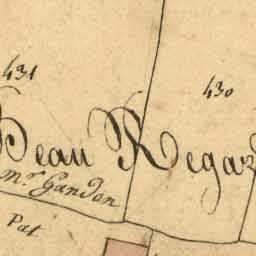 431
430
Beau Regar
mr Gandon
Pat